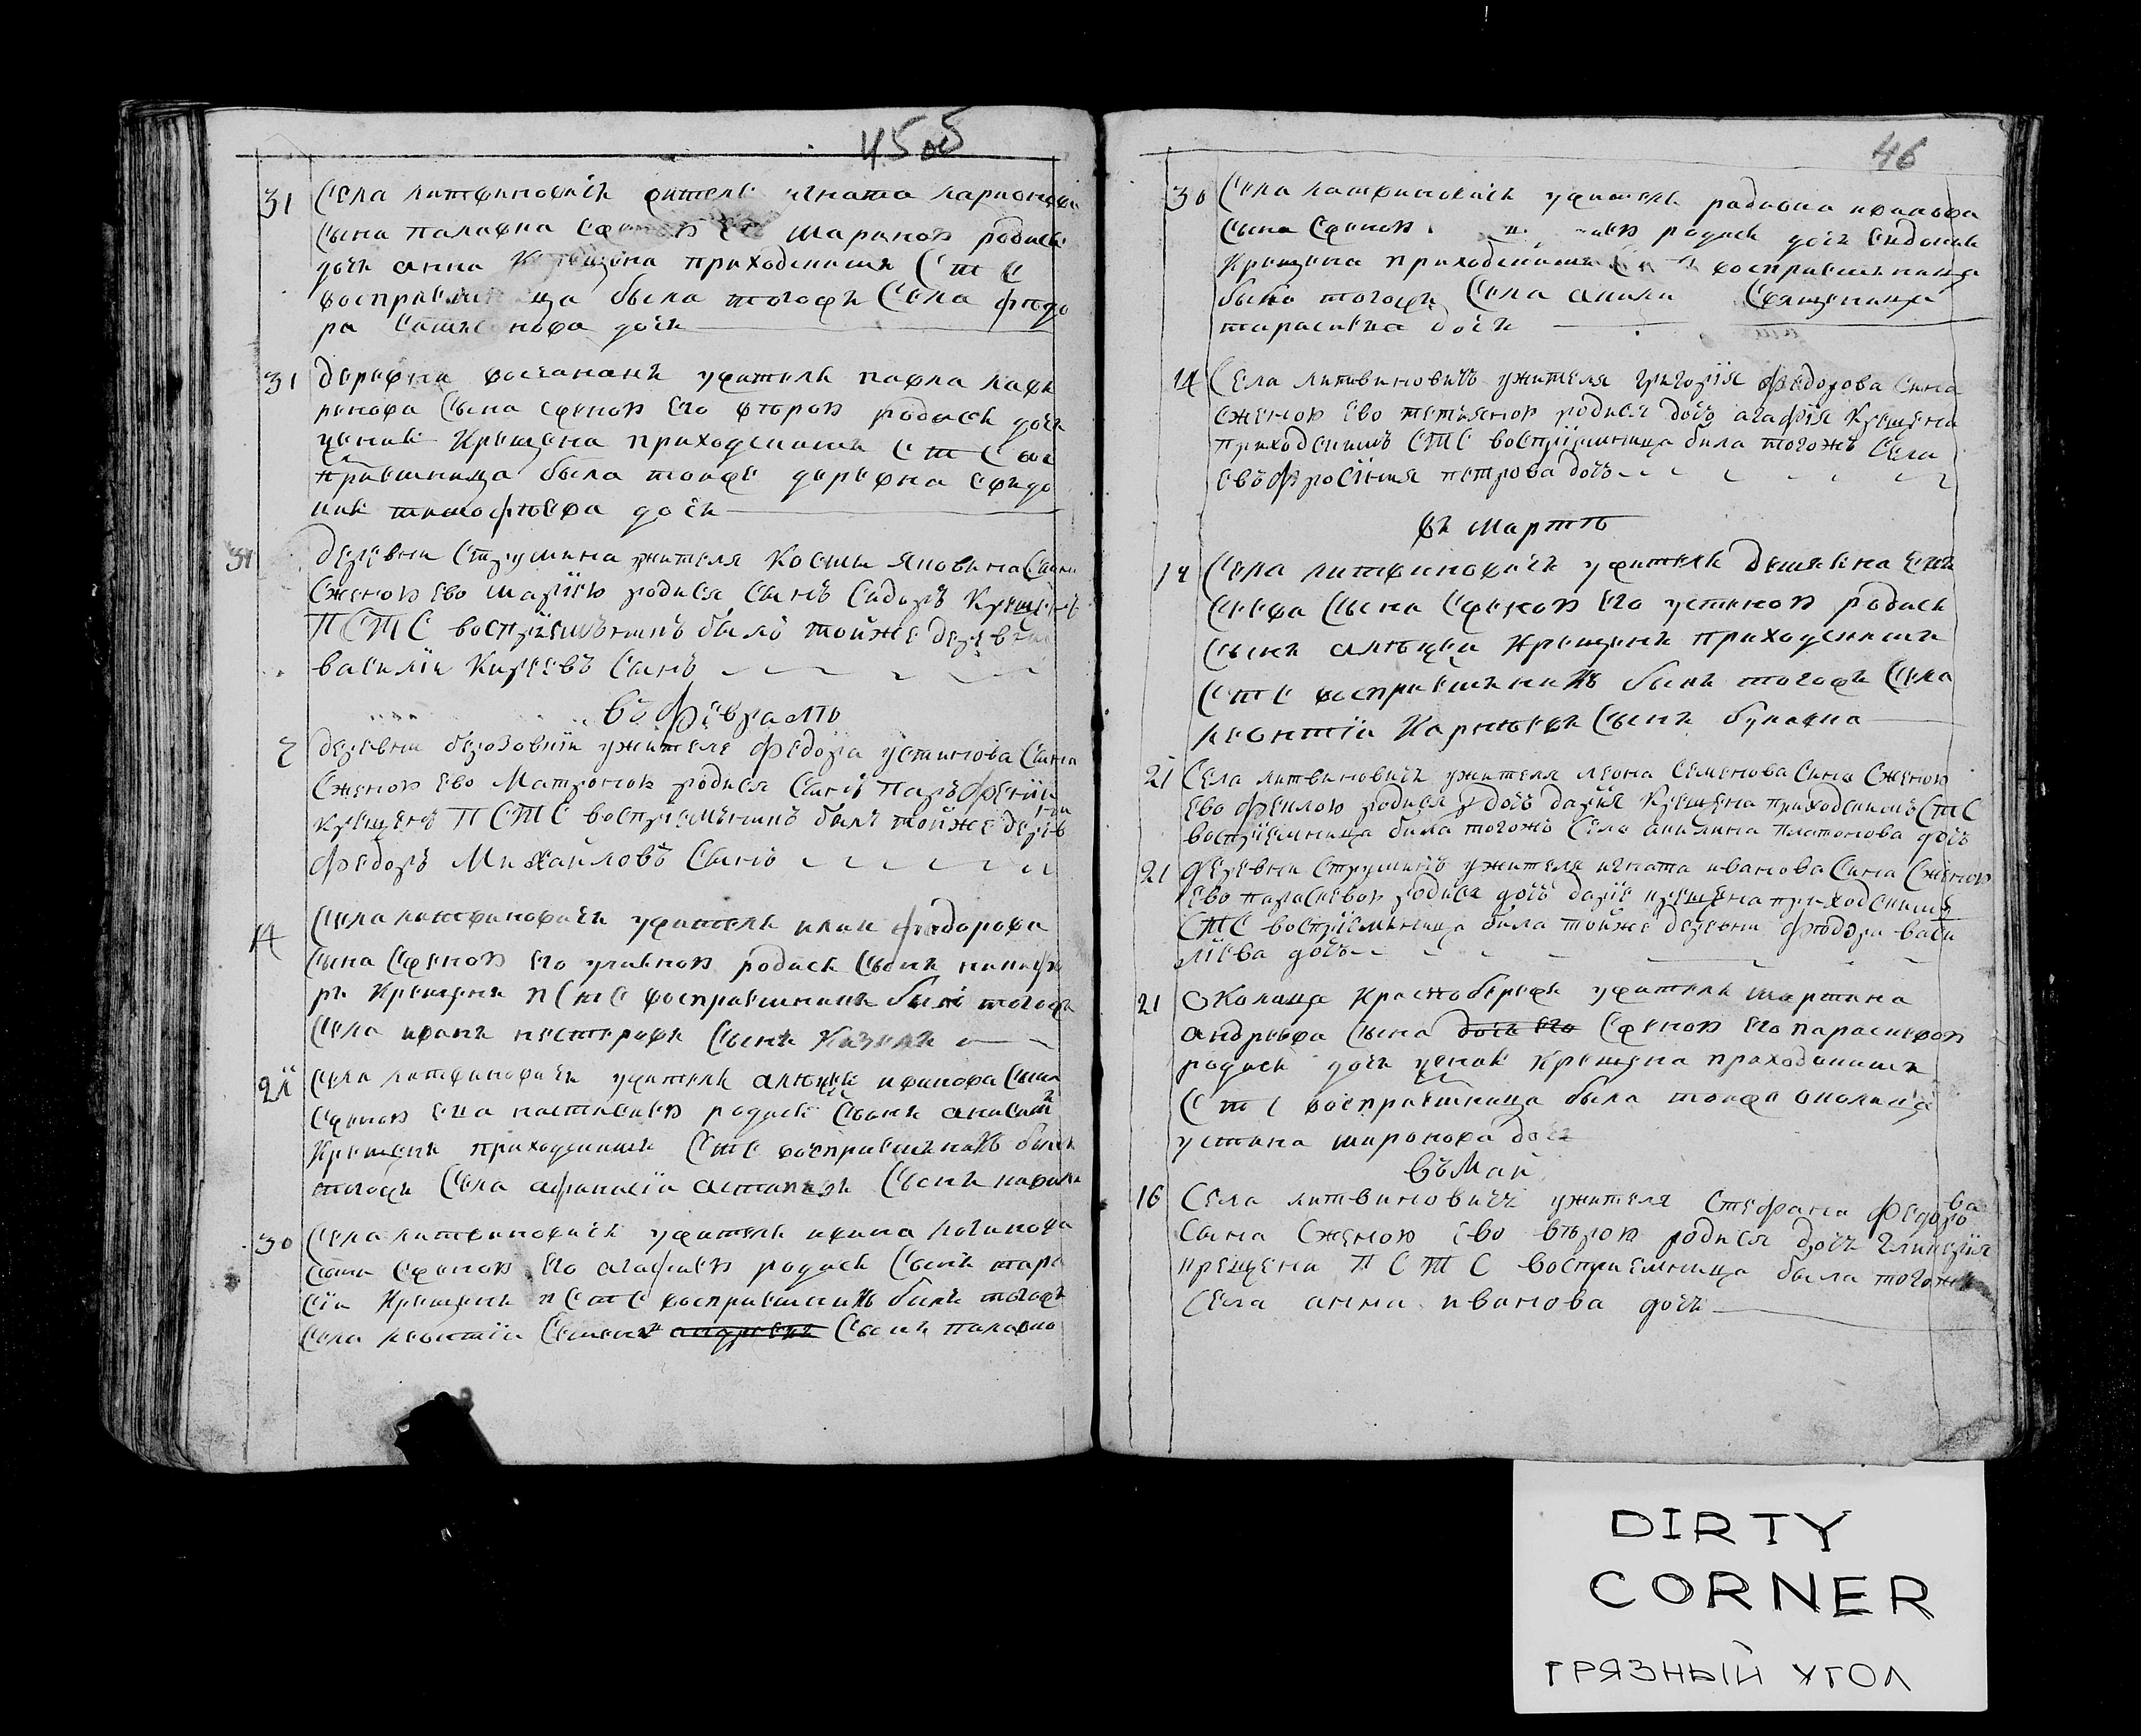 45 об
31 Села литвиновичъ жителя игната ларионова
сына палавна сженою его мариною родися
дочь анна крещена приходскимъ С т С
восприемница была тогожъ села федо
ра дочь
31 деревни жителя павла лавъ
ренова сына сженою его второю родися дочь
ксения крещена приходскимъ С т С вос
приемница была тояже деревна евдо
кия тимофѣева дочь
31 деревни струмина жителя Косми сина
Сженою Ево мариею родился Сынъ Сидоръ Крещенъ
П С Т С воспрїемъникъ былъ тойже деревни
василїи Киреевъ Сынъ
въ феѵралѣ
2 деревни березовкїи ужителя Федора устинова Сина
Сженою Ево Матроною родился Синъ Парфенїи
крещенъ П С Т С воспрїемъникъ былъ тойже дерев
ни
Федоръ Михаиловъ Синъ
14 Села литвиновичъ ужителя илии федорова
сына Сженою его улияною родися Сынъ никифо
ръ крещенъ п С т С восприемникъ былъ тогожъ
Села иванъ нестеровъ Сынъ
21 Села литвиновичъ ужителя алѣксѣя иванова Сына
Сженою его настасиею родися Сынъ анисимъ
Крещенъ приходскимъ С т С восприемникъ былъ
тогожъ Села афанасїи Сынъ
30 Села литвиновичъ ужителя ивана логинова
сына Сженою его агафиею родися Сынъ тара
сїи Крещенъ п С т С восприемникъ былъ тогожъ
Села леонтїи Семеновъ андреевъ Сынъ палавно
46
30 Села литвиновичъ ужителя радиона иванова
сына Сженою родися дочь Евдокия
Крещена приходскимъ С т С восприемница
была тогожъ Села акили Священика
тарасиева дочь
14 Села литвиновичъ ужителя григорїя Федорова Сина
Сженою Ево тетианою родися дочъ агафїя Крещена
приходскимъ С Т С воспрїемница била тогожъ Села
Евъфросїния петрова дочъ
въ мартѣ
14 Села литвиновичъ ужителя демяна
сына Сженою его устиною родися
Сынъ алѣксѣй крещенъ приходскимъ
С т С восприемникъ былъ тогожъ Села
леонтїи Карнѣевъ Сынъ
21 Села литвиновичъ ужителя леона Семенова Сина Сженою
Ево феклою родися дочъ дарїя Крещена приходскимъ С Т С
воспрїемница била тогожъ Села акилина платонова дочъ
21 деревни Струминъ ужителя игната иванова Сина Сженою
Ево параскевою родися дочъ дарїя крещена приходскимъ
С Т С воспрїемница била тойже деревни Федора васи
лїева дочъ
21 Околица краснобережъ ужителя мартина
андреева сына дочь его Сженою его параскевою
родися дочь ксения крещена приходскимъ
С т С восприемница была тояже околица
устина миронова дочь
въ Маи
16 Села литвиновичъ ужителя Стефана Федоро
ва
Сина Сженою Ево вѣрою родися дочъ
крещена П С Т С восприемница была тогожъ
Села анна иванова дочъ
DIRTY
CORNER
ГРЯЗНЫЙ УГОЛ